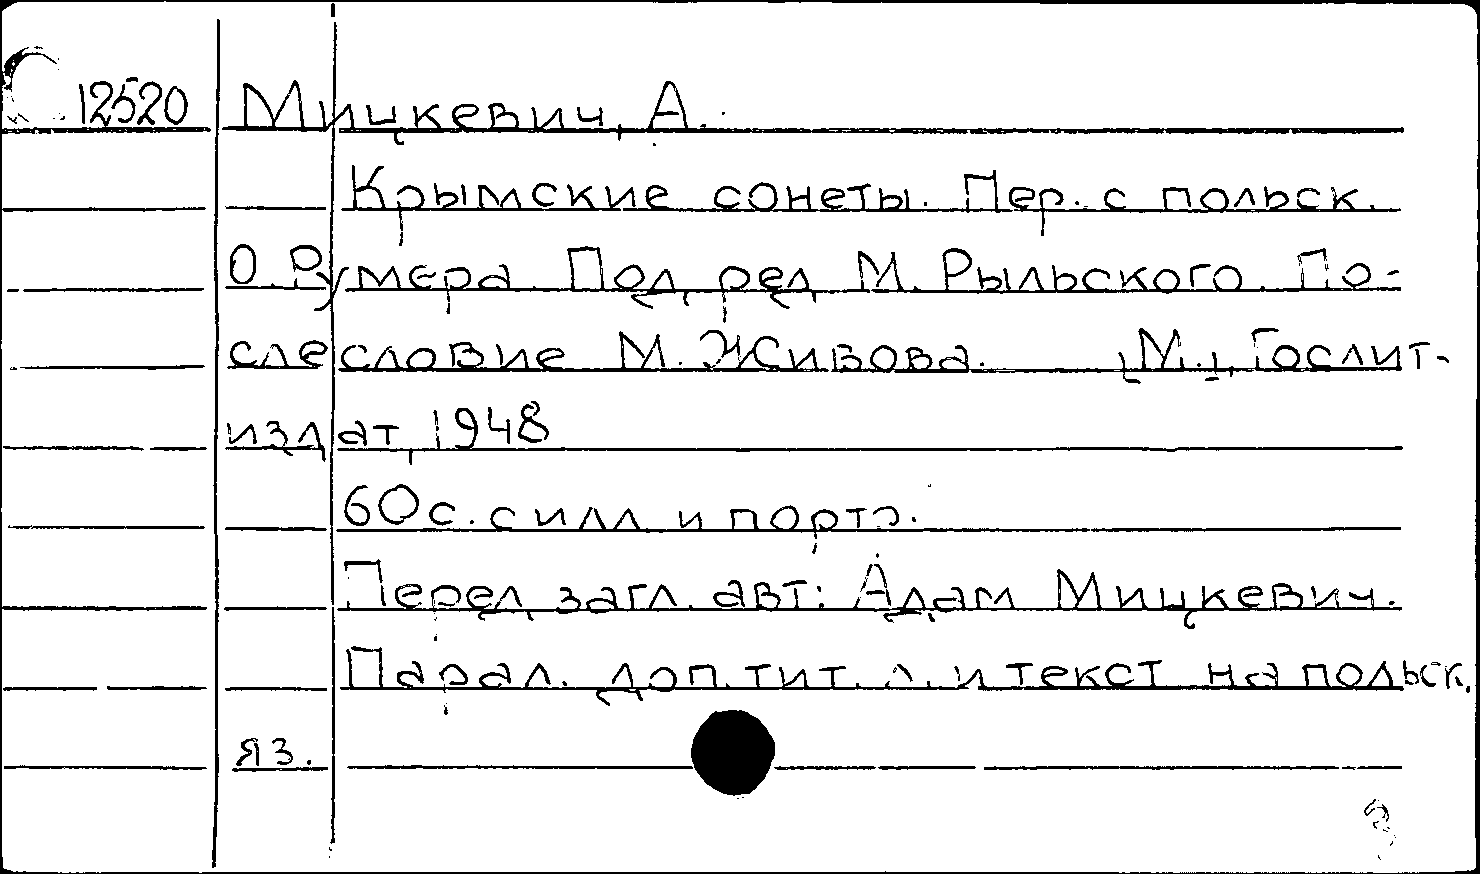 12520 Мицкевич, А.
Крымские сонеты. Пер. с польск.
О. Румера. Под ред М. Рыльского. По-
словие М. Живова. [М.], Гослит-
издат, 1948
60 с. с илл. и портр.
Перед загл. авт: Адам Мицкевич.
Парал. доп. тит. л. и текст на польск.
яз.